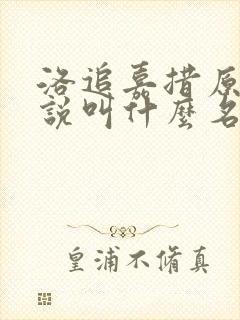 洛追嘉措原
說叫什麼名
皇浦不脩真